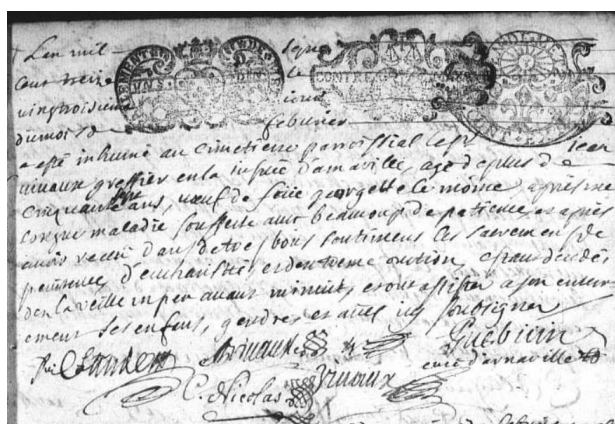 L'an mil sept
Cent treize le
vingtroisieme jour
du mois de febvrier
a esté inhumé au cimetiere parroissial le Sr Jean
vivaux greffier en la justice d'arnaville, agé de plus de
Cinquante ans, veuf de feüe georgette le moine, apres une
longue maladie soufferte avec beaucoup de patience, et apres
avoir receu dans de tres bons sentimens les sacremens de
penitence, d'eucharistie, et d'extreme onction, estant decedé
la veille un peu avant minuit, et ont assister a son enterr
ement ses enfans, gendres, et autres soubsigner
Guebuin
curé d'arnaville
Vivaux
C. Nicolas
Vivaux